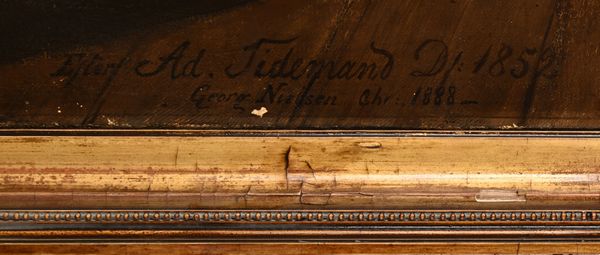 Efter Ad. Tidemand Df: 1852
Georg Nielsen Chr: 1888